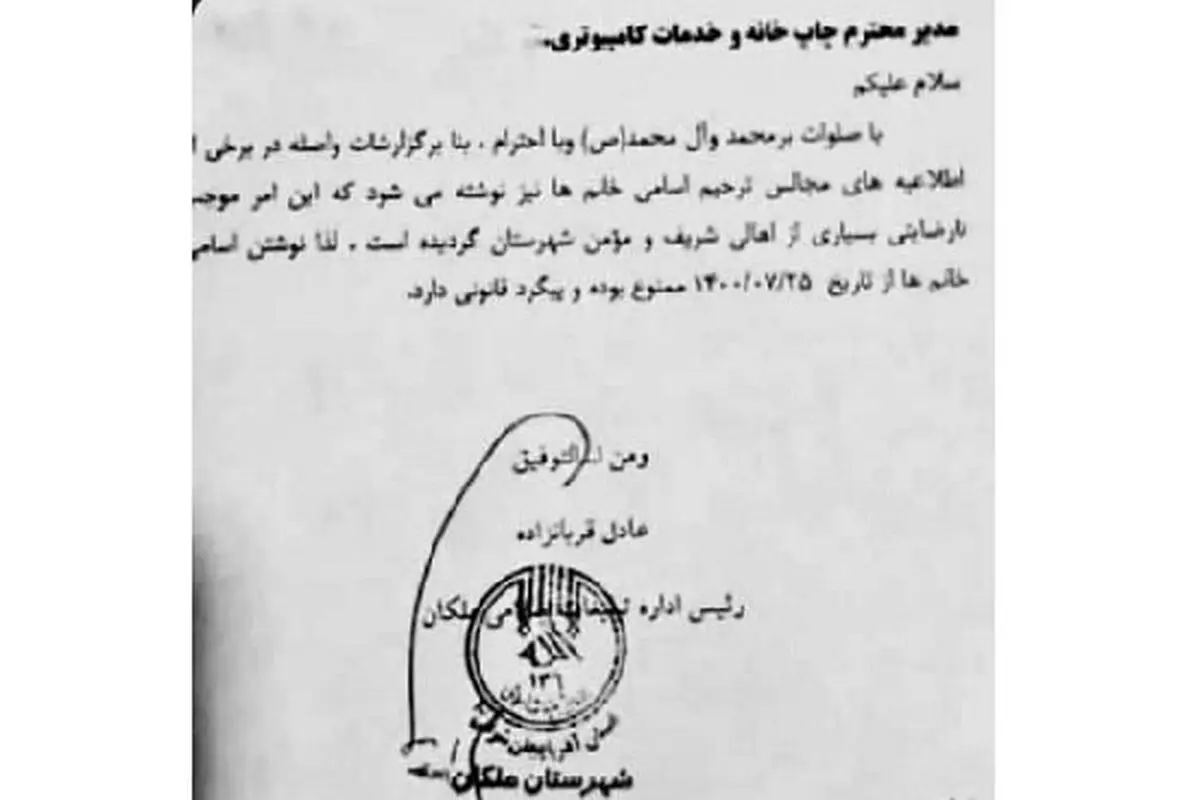 مدیر محترم چاپ خانه و خدمات کامپیوتری.
سلام علیکم
با صلوات برمحمد وآل محمد(ص) وبا احترام . بنا برگزارشات واصله در برخی ا
اطلاعیه های مجالس ترحیم اسامی خانم ها نیز نوشته می شود که این امر موجب
نارضایتی بسیاری از اهالی شریف و مؤمن شهرستان گردیده است . لذا نوشتن اسامی
خانم ها از تاریخ ۱۴۰۰/۰۷/۲۵ ممنوع بوده و پیگرد قانونی دارد.
ومن الله التوفیق
عادل قربانزاده
رئیس اداره تبلیغات اسلامی ملکان
۱۳۶
شهرستان ملکان